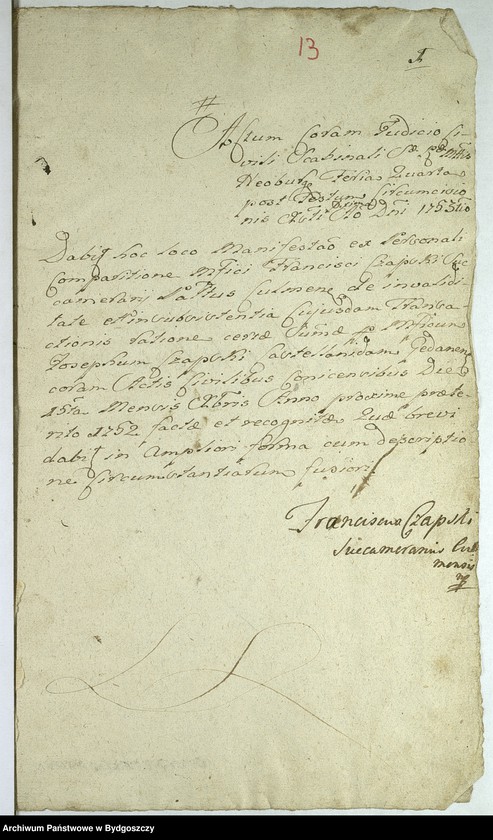 13
1
Actum Coram Judicio Ci-
vili Scabinali
Neoburg Feria Quarta
post Festum Circumcisio
nis Dni 1753tio
Dabit hoc loco Manifestaõ ex Personali
Comparitione Mfici Francisci Czapski Suc
camerarij Pallttus Culmen de invalidi-
tate et insubsistentia Cujusdam Transa-
ctionis ratione certæ Sumæ p Mficum
Josephum Czapski Castellanidam Gedanen
coram Actis Civilibus Conicensibus Die
15ta Mensis Xbris Anno proxime præte-
rito 1752 factæ et recognitæ Quæ brevi
dabit in Ampliori forma cum descriptio
ne Circumstantiarum fusiori.
Franciscus Czapski
Succamerarius Cul
mensis
mp
Archiwum Państwowe w Bydgoszczy